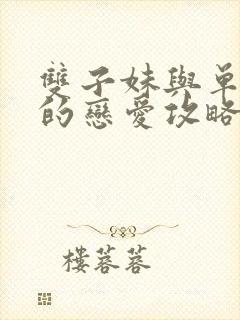 雙子妹與單
的戀愛攻略
樓蓉蓉